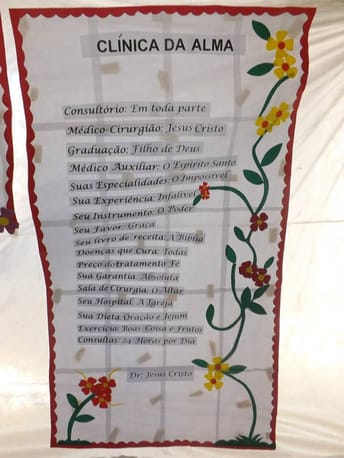 CLÍNICA DA ALMA
Consultório: Em toda parte
Médico-Cirurgião: Jesus Cristo
Graduação: Filho de Deus
Médico Auxiliar: O Espírito Santo
Suas Especialidades: O Impossível
Sua Experiência: Infalível
Seu Instrumento: O Poder
Seu Favor: Graça
Seu livro de receita: A Bíblia
Doenças que Cura: Todas
Preço do tratamento Fé
Sua Garantia: Absoluta
Sala de Cirurgia: O Altar
Seu Hospital: A Igreja
Sua Dieta: Oração e Jejum
Exercício: Boas Coisa e Frutos
Consultas: 24 Horas por Dia
Dr: Jesus Cristo